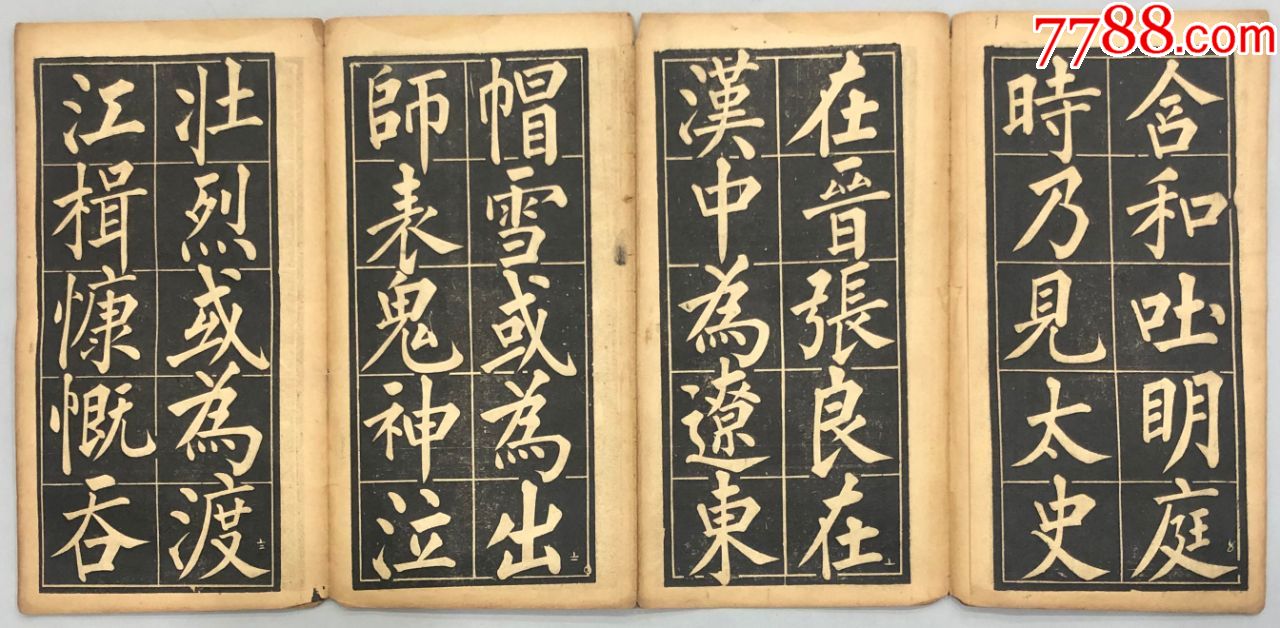 7788.com
含和吐明庭
時乃見太史
在晉張良在
漢中為遼東
帽雪或為出
師表鬼神泣
壯烈或為渡
江楫慷慨吞